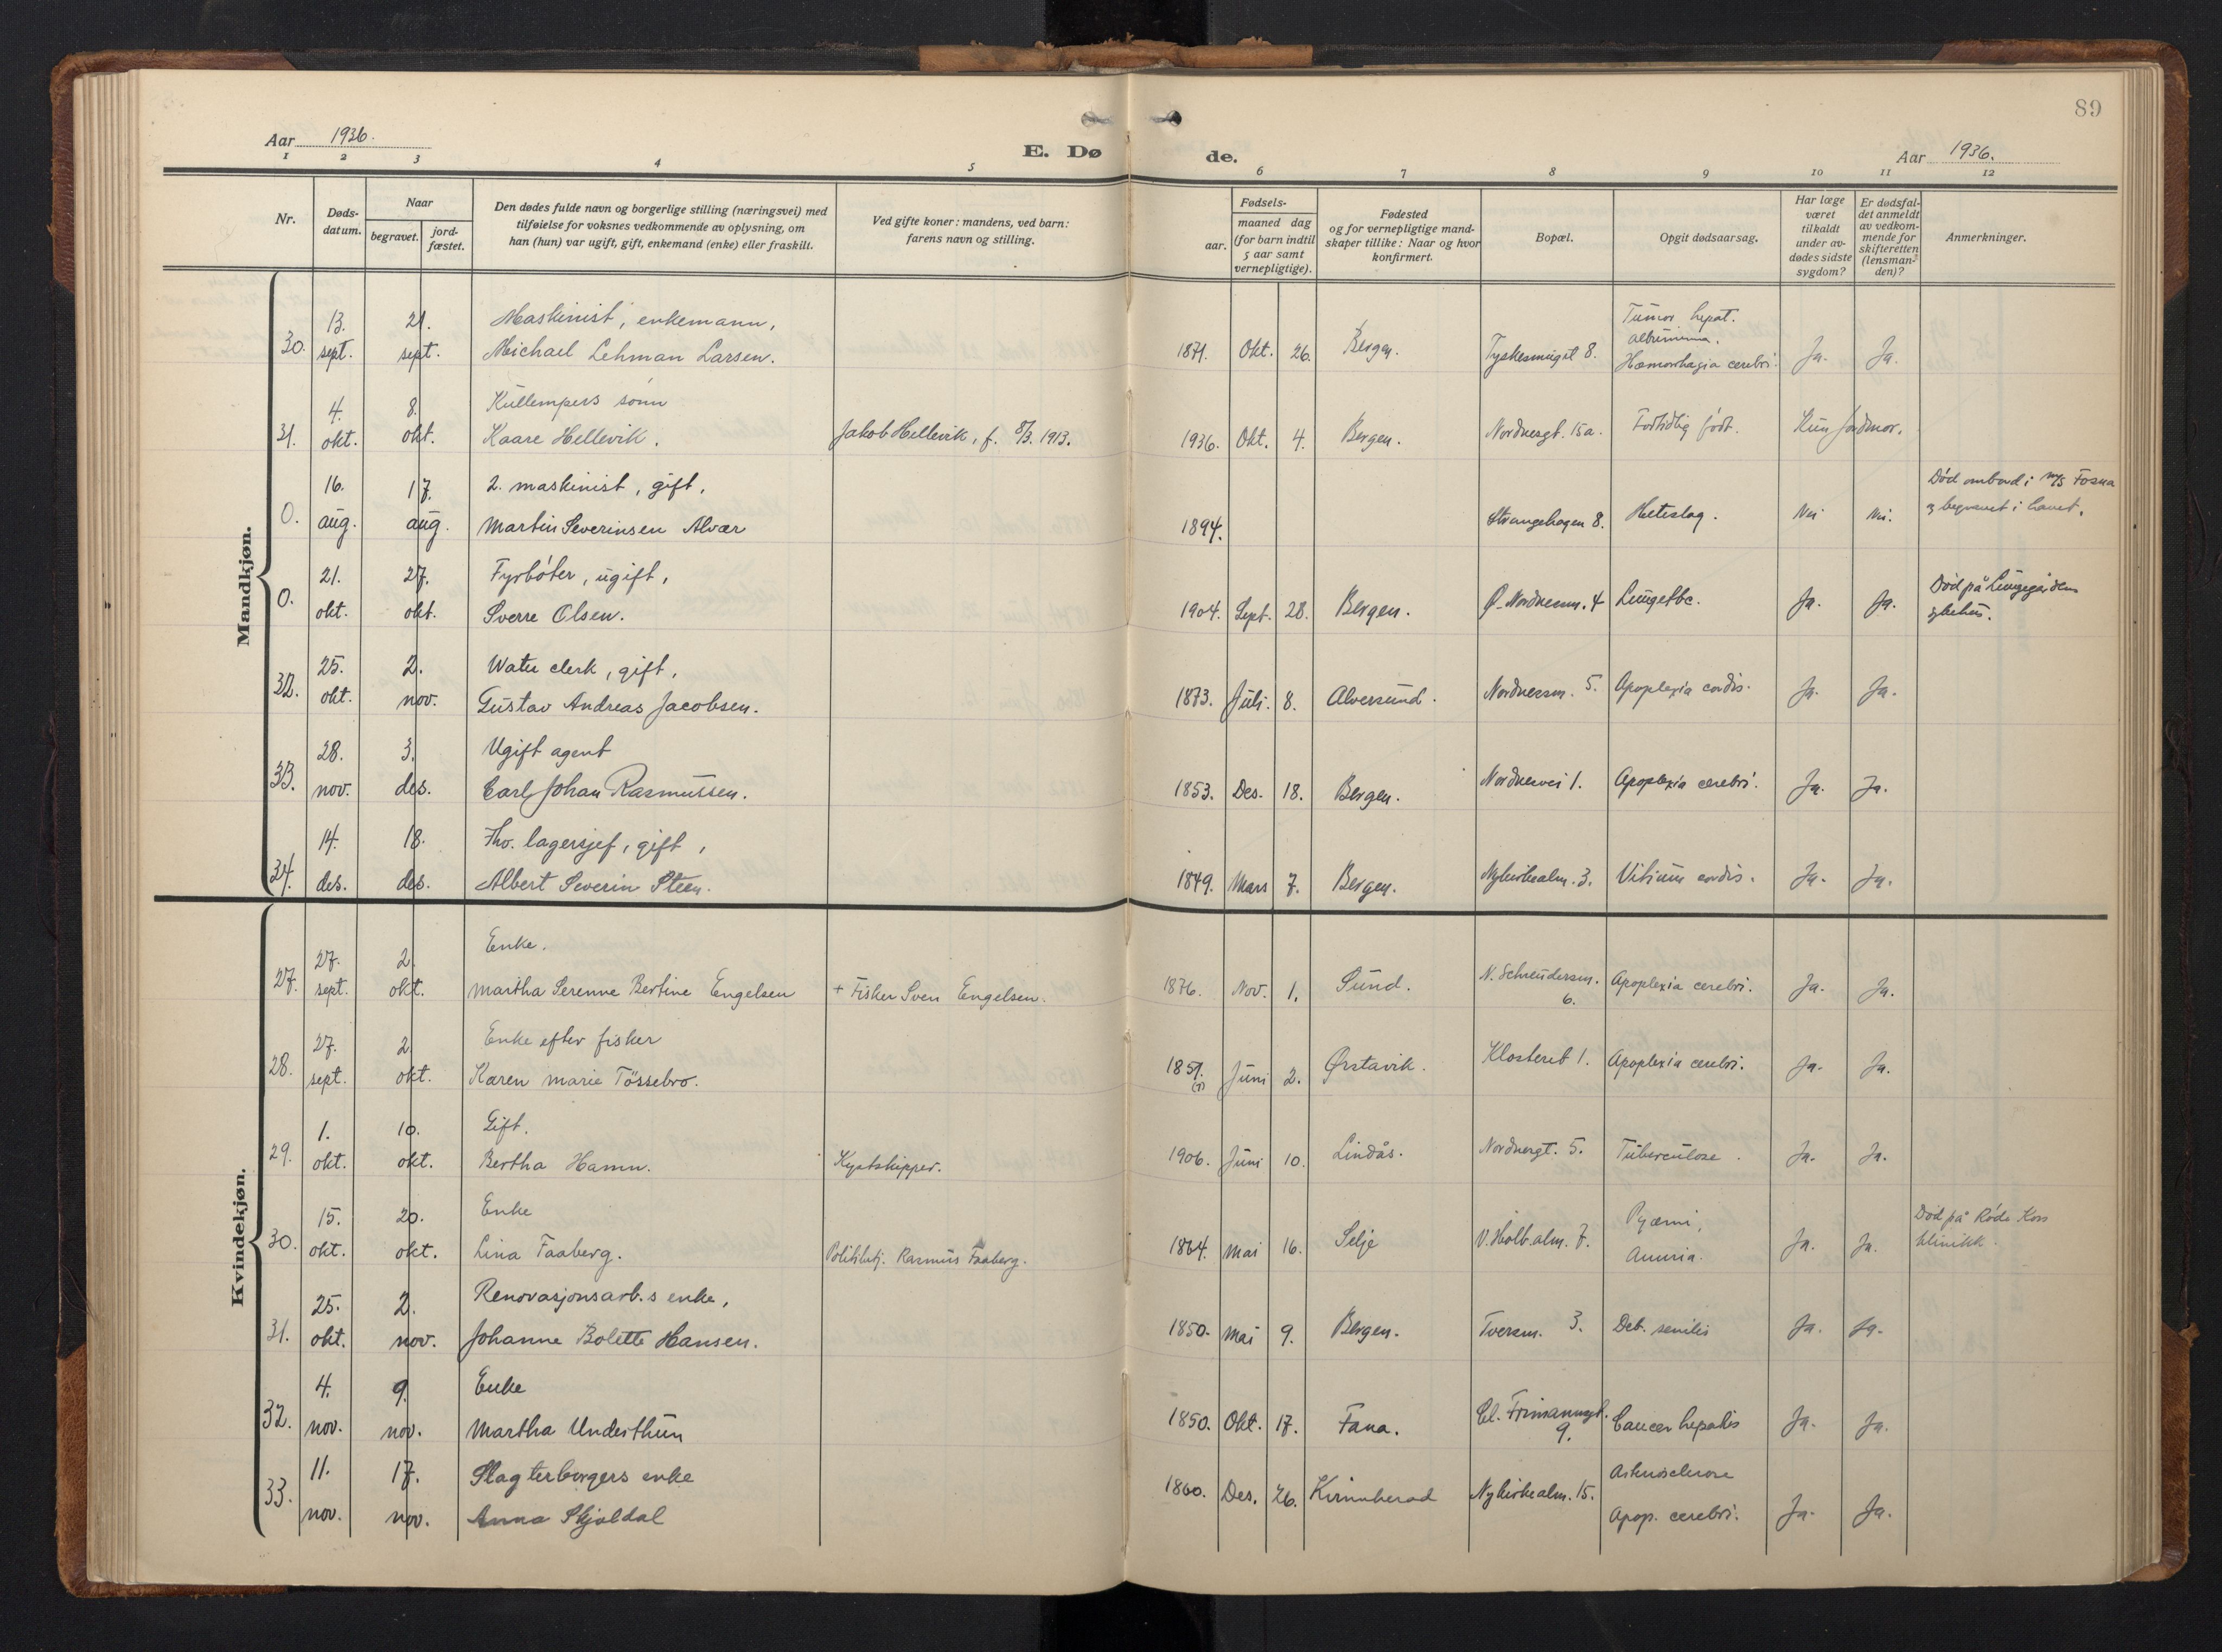 89
Aar 1936.
E. Dø de.
Aar 1936.
1 2 3 4 5 6 7 8 9 10 11 12
Nr.
Døds-
datum.
Naar
begravet.
jord-
fæstet.
Den dødes fulde navn og borgerlige stilling (næringsvei) med
tilføielse for voksnes vedkommende av oplysning, om
han (hun) var ugift, gift, enkemand (enke) eller fraskilt.
Ved gifte koner: mandens, ved barn:
farens navn og stilling.
Fødsels-
aar.
maaned dag
(for barn indtil
5 aar samt
vernepligtige).
Fødested
og for vernepligtige mand-
skaper tillike: Naar og hvor
konfirmert.
Bopæl.
Opgit dødsaarsag.
Har læge
været
tilkaldt
under av-
dødes sidste
sygdom?
Er dødsfal-
det anmeldt
av vedkom-
mende for
skifteretten
(lensman-
den)?
Anmerkninger.
Mandkjøn.
13. 21. Maskinist, enkemann, Tumor hepat.
30. sept. sept. Michael Lehman Larsen. 1871. Okt. 26. Bergen. Tyskesmugt 8. Hæmorrhagia cerebri. Ja. Ja.
4. 8. Kullempers sønn
31. okt. okt. Kaare Hellevik. Jakob Hellevik, f. 8/3. 1913. 1936. Okt. 4. Bergen. Nordnesgt. 15a. Fortidlig født. Kun jordmor.
16. 17. 2. maskinist, gift, Død ombord i m/s Fosna
0. aug. aug. Martin Severinsen Alvær 1894. Strangehagen 8. Heteslag. Nei Nei. og begravet i havet.
21. 27. Fyrbøter, ugift, Død på Lungegårdens
0. okt. okt. Sverre Olsen. 1904. Sept. 28. Bergen. Ø. Nordnessm. 4 Lungetbc. Ja. Ja. sykehus.
25. 2. Water clerk, gift,
32. okt. nov. Gustav Andreas Jacobsen. 1873. Juli. 8. Alversund. Nordnessm. 5. Apoplexia cordis. Ja. Ja.
28. 3. Ugift agent
33. nov. des. Carl Johan Rasmussen. 1853. Des. 18. Bergen. Nordnesvei 1. Apoplexia cerebri. Ja. Ja.
14. 18. Fhv. lagersjef, gift,
34. des. des. Albert Severin Steen. 1849. Mars 7. Bergen. Nykirkealm. 3. Vitium cordis. Ja. Ja.
Kvindekjøn.
27. 2. Enke.
27. sept. okt. Martha Serenne Bertine Engelsen + Fisker Sven Engelsen. 1876. Nov. 1. Sund. N. Schreudersm. 6. Apoplexia cerebri. Ja. Ja.
27. 2. Enke efter fisker
28. sept. okt. Karen Marie Tøssebro. 1859. Juni 2. Ørstavik. Klosteret 1. Apoplexia cerebri. Ja. Ja.
1. 10. Gift.
29. okt. okt. Bertha Hamn. Kystskipper. 1906. Juni 10. Lindås. Nordnesgt. 5. Tuberculose. Ja. Ja.
15. 20. Enke Pyæmi, Død på Røde Kors
30. okt. okt. Lina Taaberg. Politibetj. Rasmus Taaberg. 1864. Mai 16. Selje V. Holb. alm. 7. Anuria. Ja. Ja. klinikk.
25. 2. Renovasjonsarb.s enke,
31. okt. nov. Johanne Bolette Hansen. 1850. Mai 9. Bergen. Tversm. 3. Deb. senilis Ja. Ja.
4. 9. Enke
32. nov. nov. Martha Understhun 1850. Okt. 17. Fana. Cl. Frimannsgt. 9. Cancer hepatis Ja. Ja.
11. 17. Slagterborgers enke Arteriosclerose
33. nov. nov. Anna Skjoldal 1860. Des. 26. Kvinnherad Nykirkealm. 15. Apop. cerebri. Ja. Ja.